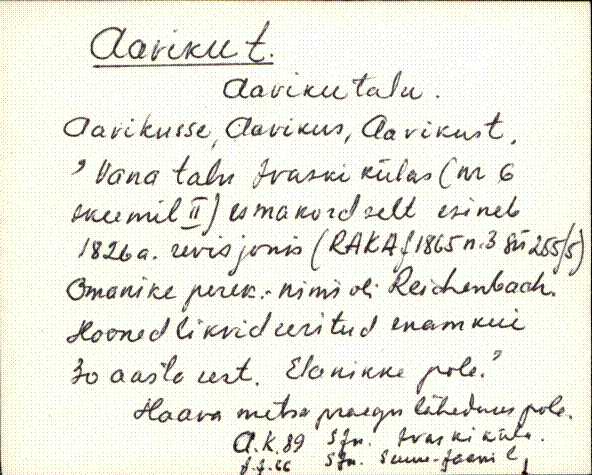 Aaviku t.
Aaviku talu.
Aavikusse, Aavikus, Aavikust.
"Vana talu Ivaski külas (nr 6
skeemil II) esmakordselt esineb
1826 a. revisjonis (RAKA f 1865 n. 3 sü 255/5)
Omanike perek.-nimi oli Reichenbach.
Hooned likvideeritud enam kui
30 aasta eest. Elanikke pole."
Haava metsa praegu läheduses pole.
A.K. 89 Sjn. Ivaski küla.
J.J. 66 Sjn. Suure-Jaani